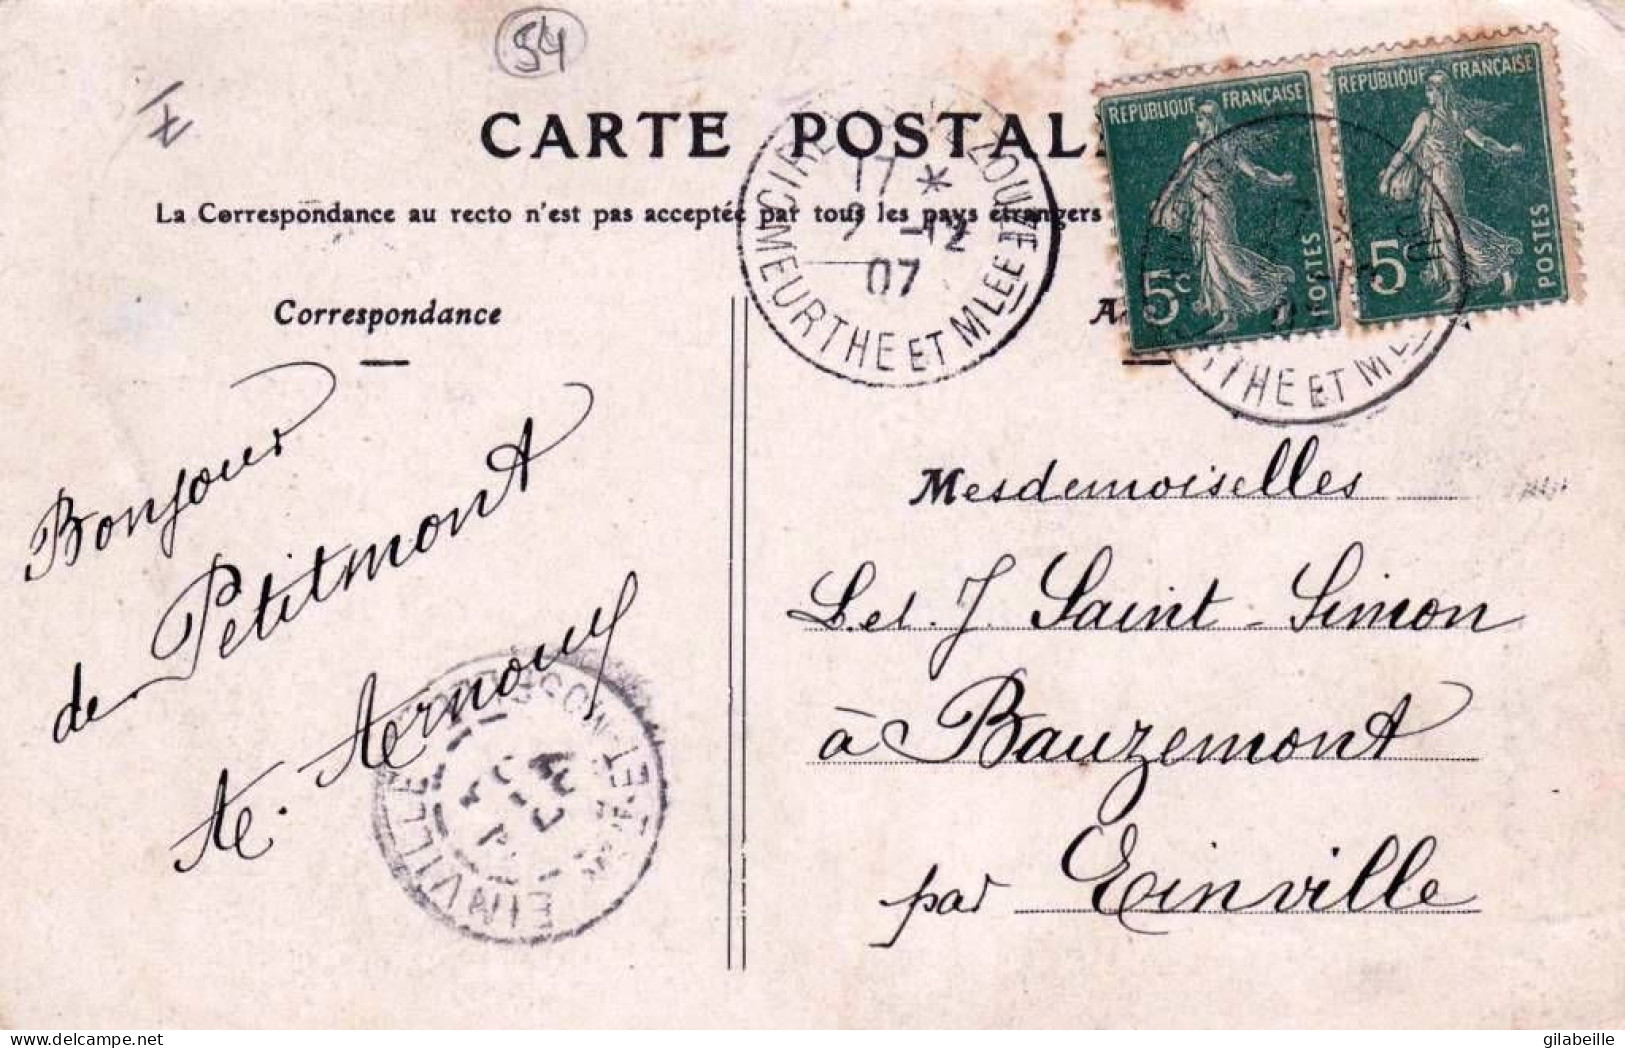 54
CARTE POSTAL
La Correspondance au recto n'est pas acceptée par tous les pays étrangers
RÉPUBLIQUE FRANÇAISE
5c
POSTES
RÉPUBLIQUE FRANÇAISE
5
POSTES
17 *
2 -12
07
MEURTHE ET MLLE
Correspondance
Bonjour
de Petitmont
A. Arnoux
EINVILLE
Mesdemoiselles
L. et J. Saint-Simon
à Bauzemont
par Einville
gilabeille